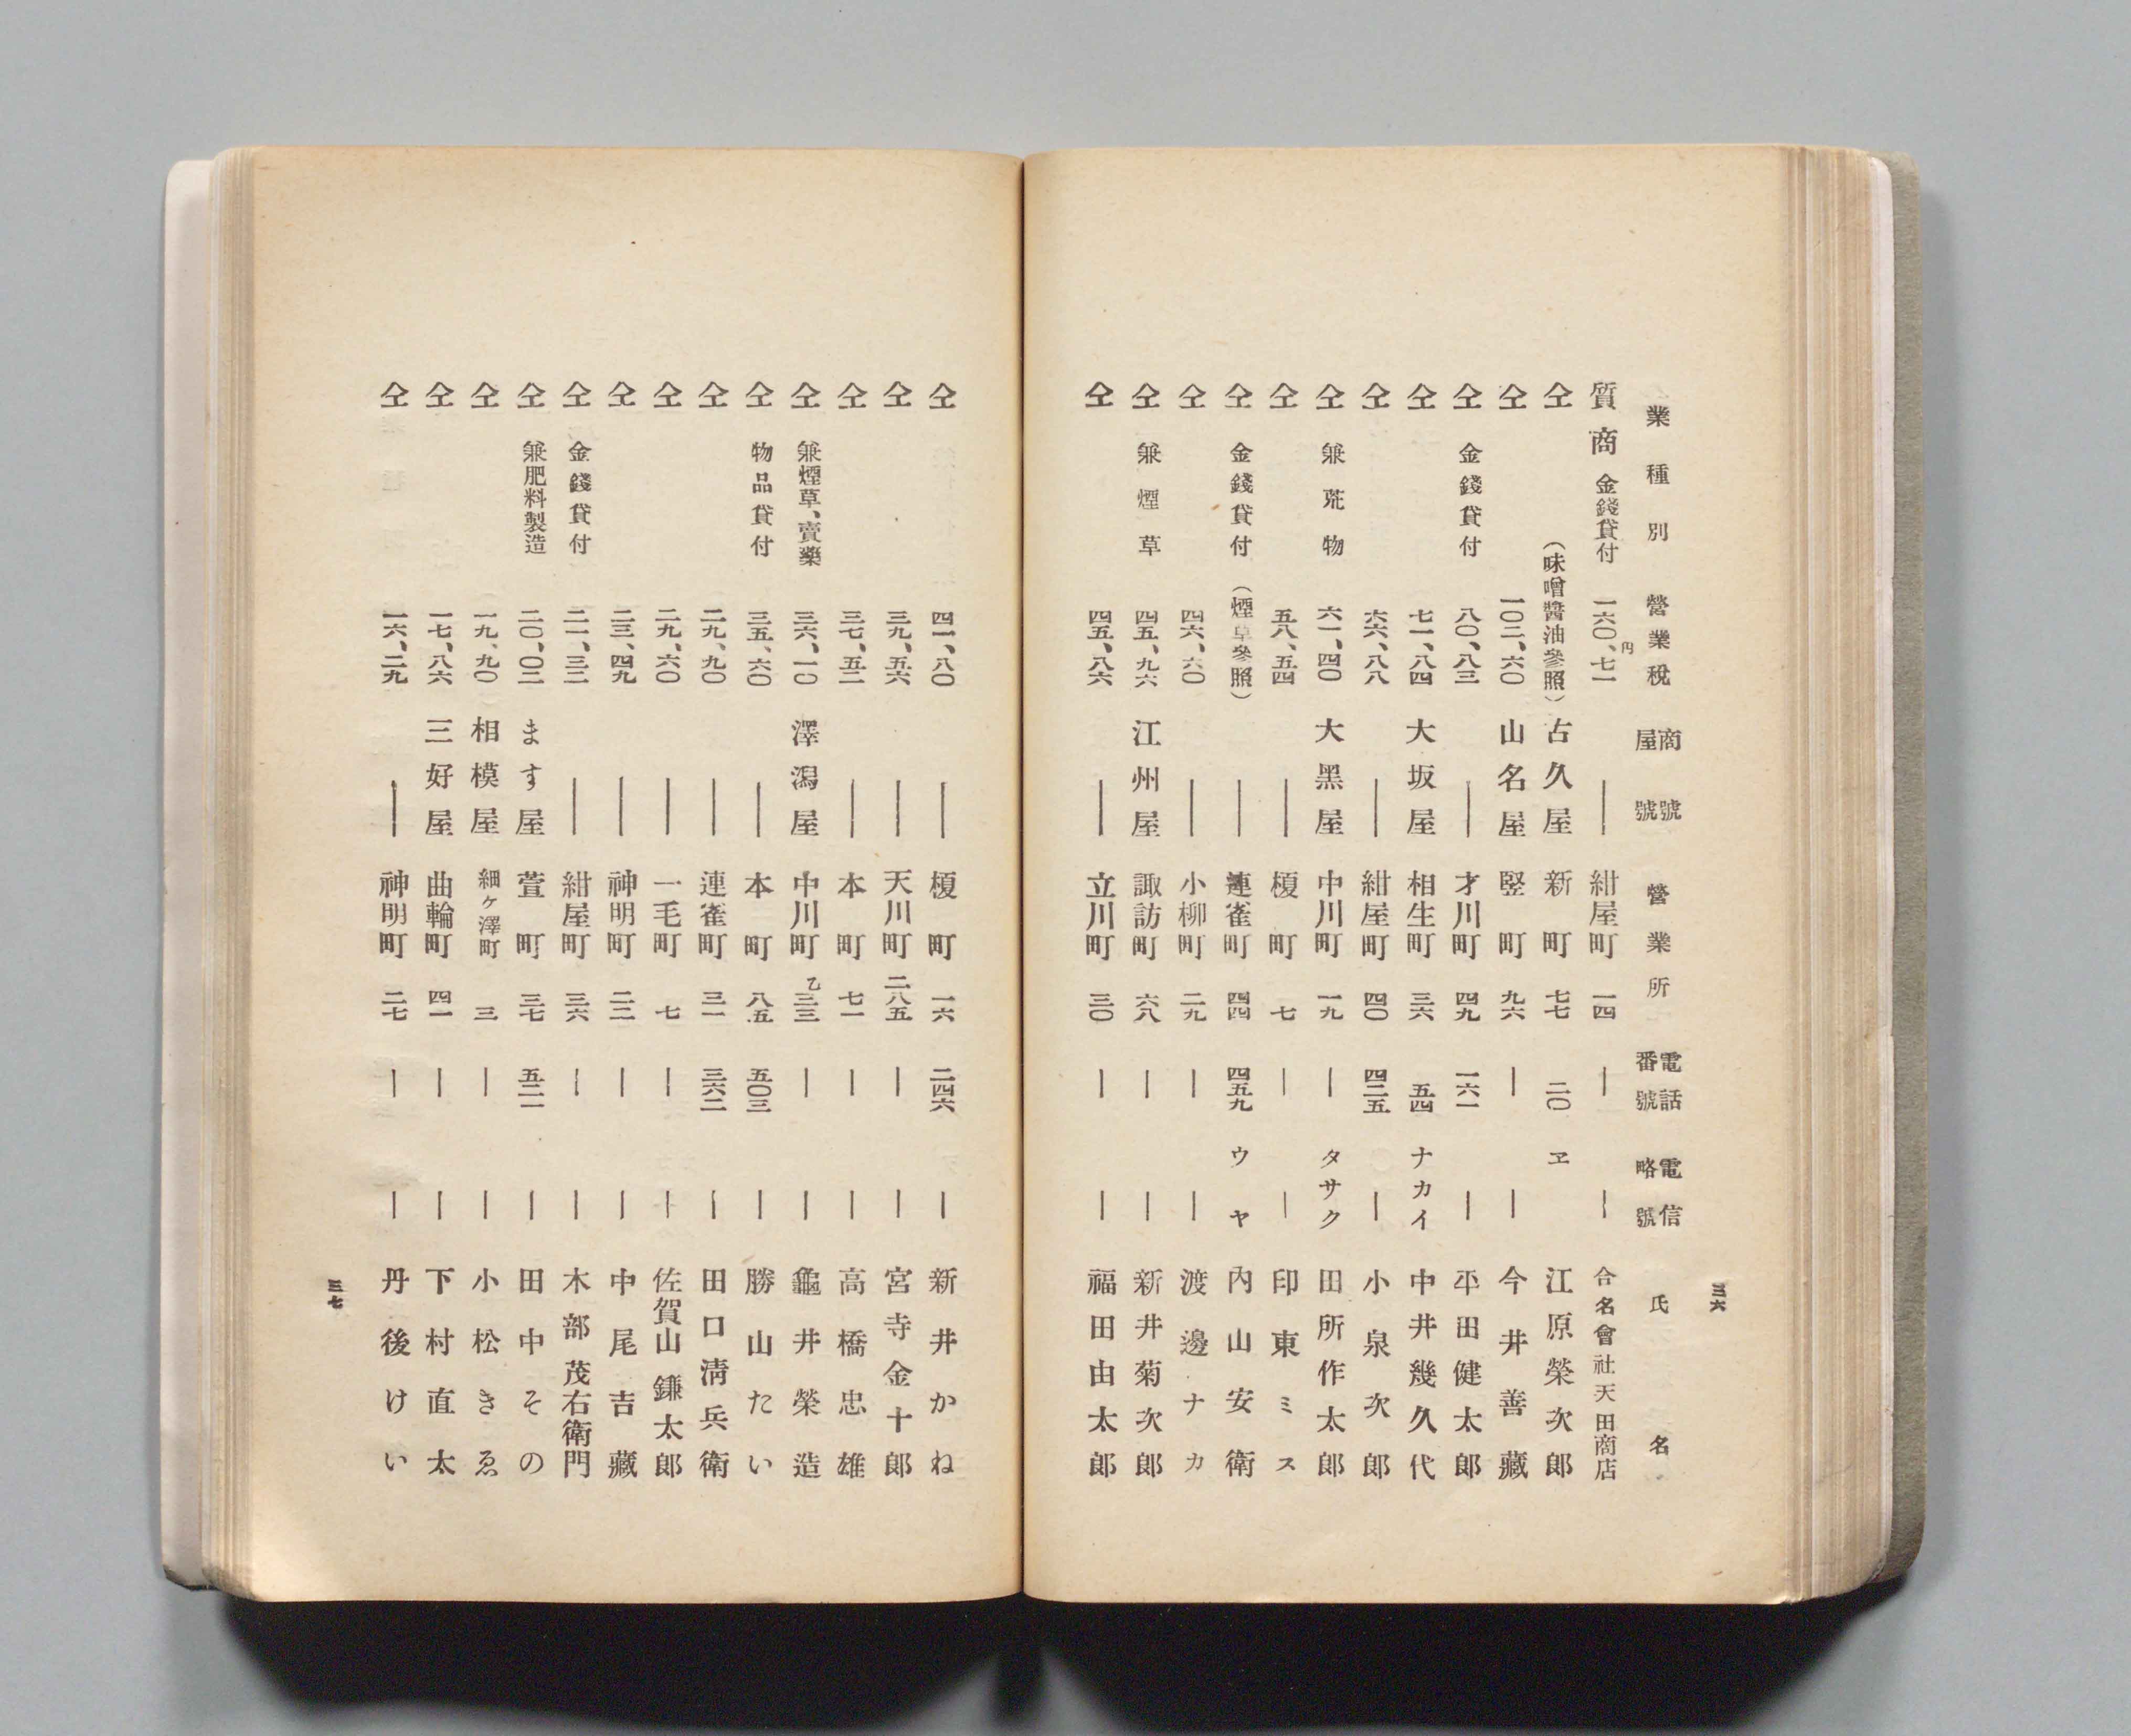 業種別 營業稅 商號屋號 營業所 電話番號 電信略號 氏名
質商 金錢貸付 一六〇、七一円 ― 紺屋町 一四 ― ― 合名會社天田商店
仝 (味噌醬油參照) 古久屋 新町 七七 二〇 ヱ 江原榮次郎
仝 一〇二、六〇 山名屋 竪町 九六 ― ― 今井善藏
仝 金錢貸付 八〇、八三 ― 才川町 四九 一六一 ― 平田健太郎
仝 七一、八四 大坂屋 相生町 三六 五四 ナカイ 中井幾久代
仝 六六、八八 ― 紺屋町 四〇 四二五 ― 小泉次郎
仝 兼荒物 六一、四〇 大黑屋 中川町 一九 ― タサク 田所作太郎
仝 五八、五四 ― 榎町 七 ― ― 印東ミス
仝 金錢貸付 (煙草參照) ― 連雀町 四四 四五九 ウヤ 內山安衛
仝 四六、六〇 ― 小柳町 二九 ― ― 渡邊ナカ
仝 兼煙草 四五、九六 江州屋 諏訪町 六八 ― ― 新井菊次郎
仝 四五、八六 ― 立川町 三〇 ― ― 福田由太郎
三六
仝 四一、八〇 ― 榎町 一六 二四六 ― 新井かね
仝 三九、五六 ― 天川町 二八五 ― ― 宮寺金十郎
仝 三七、五二 ― 本町 七一 ― ― 高橋忠雄
仝 兼煙草、賣藥 三六、一〇 澤潟屋 中川町 乙三三 ― ― 龜井榮造
仝 物品貸付 三五、六〇 ― 本町 八五 五〇三 ― 勝山たい
仝 二九、九〇 ― 連雀町 三一 三六二 ― 田口淸兵衛
仝 二九、六〇 ― 一毛町 七 ― ― 佐賀山鎌太郎
仝 二三、四九 ― 神明町 二二 ― ― 中尾吉藏
仝 金錢貸付 二一、三二 ― 紺屋町 三六 ― ― 木部茂右衛門
仝 兼肥料製造 二〇、〇二 ます屋 萱町 三七 五二一 ― 田中その
仝 一九、九〇 相模屋 細ヶ澤町 三 ― ― 小松きゑ
仝 一七、八六 三好屋 曲輪町 四一 ― ― 下村直太
仝 一六、二九 ― 神明町 二七 ― ― 丹後けい
三七